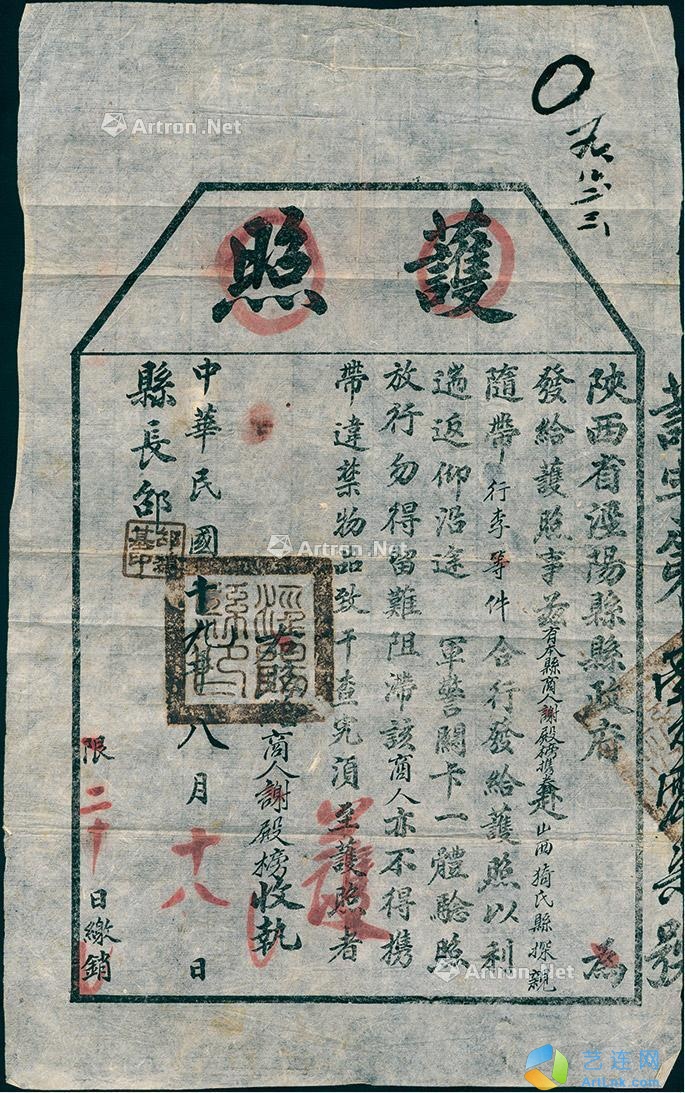 護照
陝西省涇陽縣縣政府 為
發給護照事茲有本縣商人謝殿榜攜眷赴山西猗氏縣探親
隨帶行李等件合行發給護照以利
遄返仰沿途 軍警關卡一體驗照
放行勿得留難阻滯該商人亦不得携
帶違禁物品致干查究須至護照者
商人謝殿榜收執
中華民國十九年八月十八日
縣長邵
限二十日繳銷
護
Artron.Net
Artron.Net
Artron.Net
Artron.Net
Artron.Net
艺连网